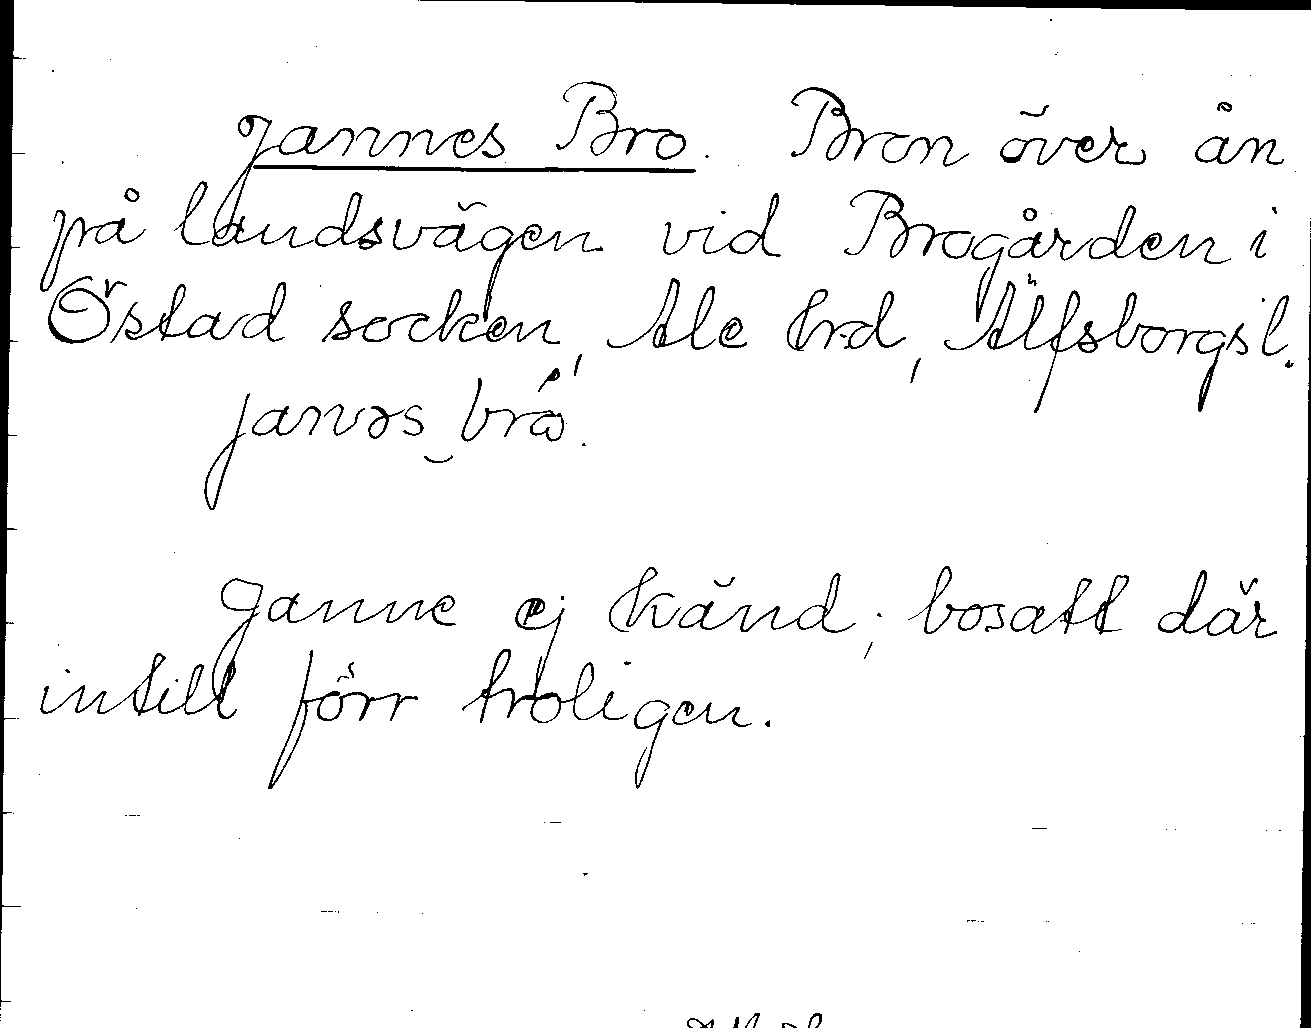 Jannes Bro. Bron över ån
på landsvägen vid Brogården i
Östad socken, Ale hrd, Älfsborgs l.
janəs brɷ́.
Janne ej känd; bosatt där
intill förr troligen.